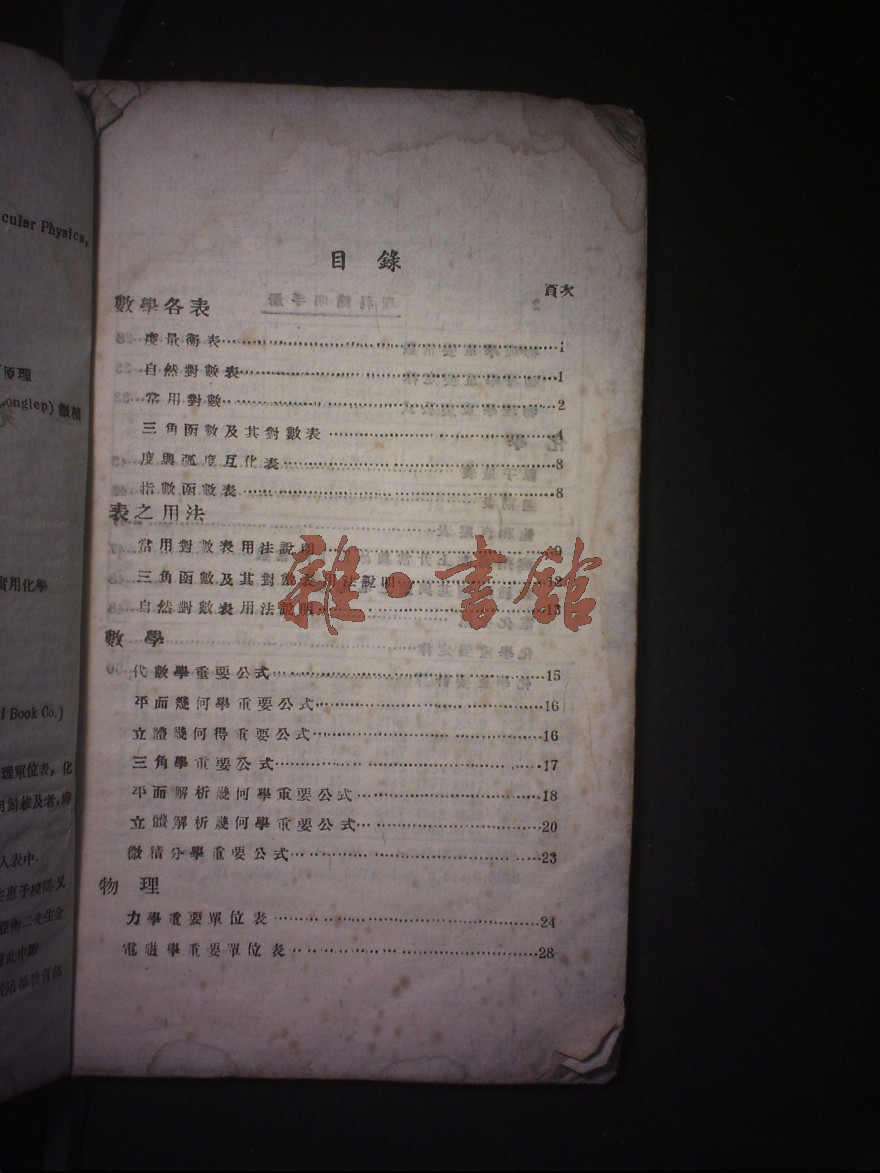 cular Physics,
原理
onglep) 微積
實用化學
l Book Co.)
理單位表，化
入表中．
目錄
頁次
數學各表
度量衡表 1
自然對數表 1
常用對數 2
三角函數及其對數表 4
度與弧度互化表 8
指數函數表 8
表之用法
常用對數表用法說明 9
三角函數及其對數表用法說明 12
自然對數表用法說明 13
數學
代數學重要公式 15
平面幾何學重要公式 16
立體幾何得重要公式 16
三角學重要公式 17
平面解析幾何學重要公式 18
立體解析幾何學重要公式 20
微積分學重要公式 23
物理
力學重要單位表 24
電磁學重要單位表 28
雜·書館